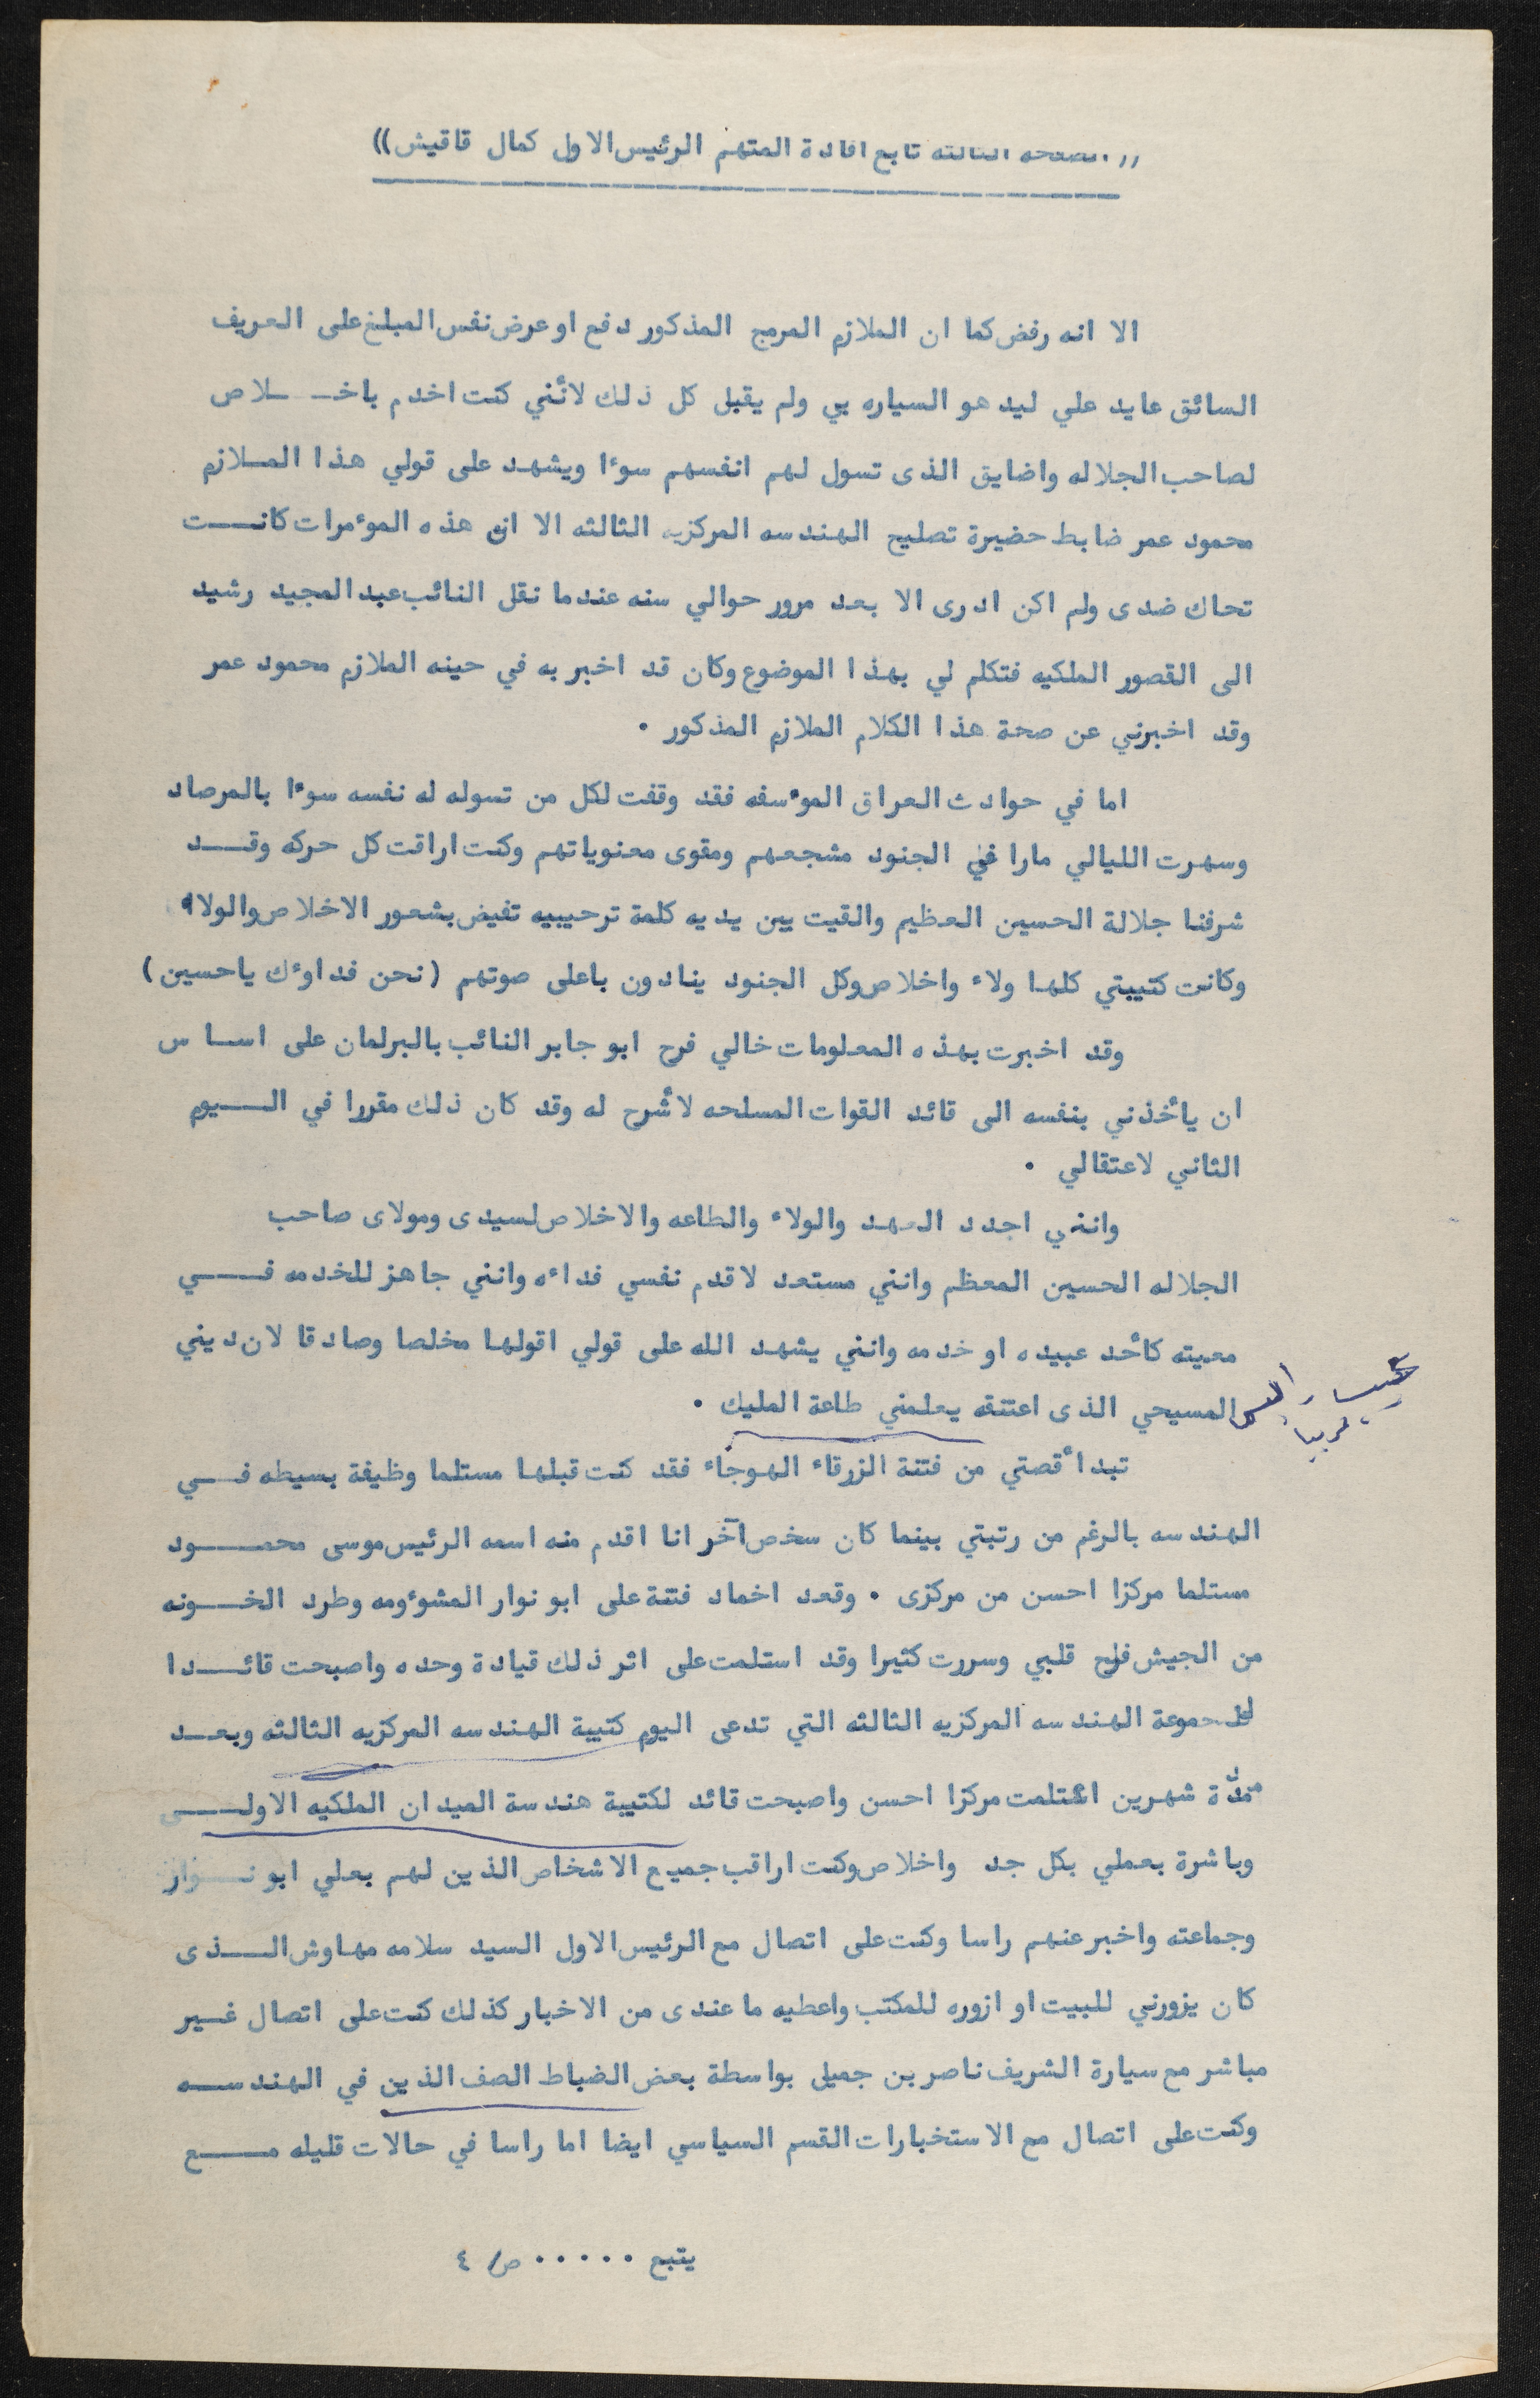 (( الصفحه الثالثه تابع افادة المتهم الرئيس الاول كمال قاقيش ))
الا انه رفض كما ان الملازم المرمج المذكور دفع او عرض نفس المبلغ على العريف
السائق عايد علي ليدهو السياره بي ولم يقبل كل ذلك لأنني كنت اخدم باخــلاص
لصاحب الجلاله واضايق الذى تسول لهم انفسهم سوءا ويشهد على قولي هذا المــلازم
محمود عمر ضابط حضيرة تصليح الهندسه المركزيه الثالثه الا ان هذه الموءمرات كانـــت
تحاك ضدى ولم اكن ادرى الا بعد مرور حوالي سنه عندما نقل النائب عبد المجيد رشيد
الى القصور الملكيه فتكلم لي بهذا الموضوع وكان قد اخبر به في حينه الملازم محمود عمر
وقد اخبرني عن صحة هذا الكلام الملازم المذكور .
اما في حوادث العراق الموءسفه فقد وقفت لكل من تسوله له نفسه سوءا بالمرصاد
وسهرت الليالي مارا غي الجنود مشجعهم ومقوى معنوياتهم وكنت اراقت كل حركه وقـــد
شرفنا جلالة الحسين العظيم والقيت بين يديه كلمة ترحيبيه تفيض بشعور الاخلاص والولاء
وكانت كتيبتي كلها ولاء واخلاص وكل الجنود ينادون باعلى صوتهم ( نحن فداوءك ياحسين )
وقد اخبرت بهذه المعلومات خالي فرح ابو جابر النائب بالبرلمان على اســاس
ان يأخذني بنفسه الى قائد القوات المسلحه لأشرح له وقد كان ذلك مقررا في اليـــوم
الثاني لاعتقالي .
وانني اجدد العهد والولاء والطاعه والاخلاص لسيدى ومولاى صاحب
الجلاله الحسين المعظم وانني مستعد لاقدم نفسي فداءه وانني جاهز للخدمه فـــي
معيته كأحد عبيده او خدمه وانني يشهد الله على قولي اقولها مخلصا وصادقا لان ديني
المسيحي الذى اعتنقه يعلمني طاعة المليك .
تبدأ قصتي من فتنة الزرقاء الهوجاء فقد كنت قبلها مستلما وظيفة بسيطه فـــي
الهندسه بالرغم من رتبتي بينما كان سخص آخر انا اقدم منه اسمه الرئيس موسى محمـــود
مستلما مركزا احسن من مركزى . وقعد اخماد فتنة على ابو نوار المشوءومه وطرد الخـــونه
من الجيش فرح قلبي وسررت كثيرا وقد استلمت على اثر ذلك قيادة وحده واصبحت قائـــدا
لمجموعة الهندسه المركزيه الثالثه التي تدعى اليوم كتيبة الهندسه المركزيه الثالثه وبعــد
مدة شهرين استلمت مركزا احسن واصبحت قائد لكتيبة هندسة الميدان الملكيه الاولـــى
وباشرة بعملي بكل جد واخلاص وكنت اراقب جميع الاشخاص الذين لهم بعلي ابو نـــوار
وجماعته واخبر عنهم راسا وكنت على اتصال مع الرئيس الاول السيد سلامه مهاوش الـــذى
كان يزورني للبيت او ازوره للمكتب واعطيه ما عندى من الاخبار كذلك كنت على اتصال غــير
مباشر مع سيارة الشريف ناصر بن جميل بواسطة بعض الضباط الصف الذين في الهندســه
وكنت على اتصال مع الاستخبارات القسم السياسي ايضا اما راسا في حالات قليله مـــع
يتبع ..... ص/ ٤